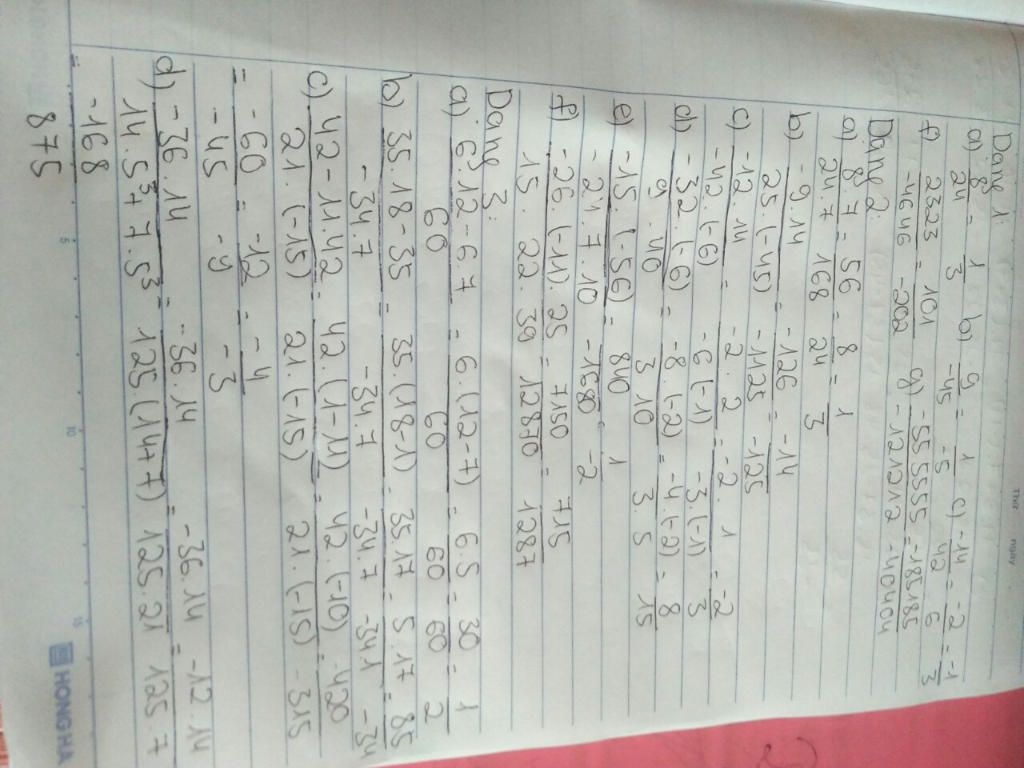 Thứ ngày
Dạng 1:
a) 8/24 = 1/3 b) 9/-45 = 1/-5 c) -14/42 = -2/6 = -1/3
f) 2323/-4646 = 101/-202 g) -555555/-121212 = -185185/-40404
Dạng 2:
a) 8.7/24.7 = 56/168 = 8/24 = 1/3
b) -9.14/25.(-45) = -126/-1125 = -14/-125
c) -12.14/-42.(-6) = -2.2/-6(-1) = -2.1/-3.(-1) = -2/3
d) -32.(-6)/9.40 = -8.(-2)/3 10 = -4.(-2)/3 5 = 8/15
e) -15.(-56)/-21.7.10 = 840/-1680 = 1/-2
f) -26.(-11).25/15.22.39 = 7150/12870 = 715/1287
Dạng 3:
a) 6.12-6 7/60 = 6.(12-7)/60 = 6.5/60 = 30/60 = 1/2
b) 35.18-35/-34 7 = 35(18-1)/-34.7 = 35 17/-34.7 = 5 17/-34 1 = 85/-34
c) 42-14.42/21.(-15) = 42.(1-14)/21(-15) = 42.(-10)/21.(-15) = -420/-315
= -60/-45 = -12/-9 = -4/-3
d) -36.14/14.5³+7.5³ = -36.14/125.(14+7) = -36.14/125.21 = -12.14/125.7
-168/875
5 10 15
HONG HA